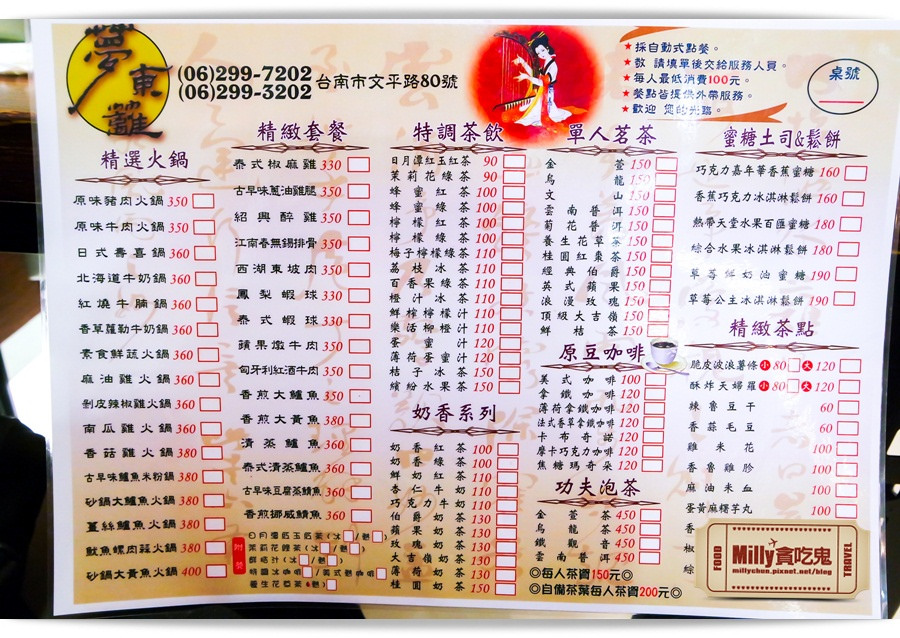 夢東籬
(06)299-7202
(06)299-3202
台南市文平路80號
★採自動式點餐。
★敬 請填單後交給服務人員。
★每人最低消費100元。
★餐點皆提供外帶服務。
★歡迎 您的光臨。
桌號
精選火鍋
原味豬肉火鍋 350
原味牛肉火鍋 350
日式壽喜鍋 350
北海道牛奶鍋 360
紅燒牛腩鍋 360
香草蘿勒牛奶鍋 360
素食鮮蔬火鍋 360
麻油雞火鍋 360
剝皮辣椒雞火鍋 360
南瓜雞火鍋 360
香菇雞火鍋 380
古早味鱸魚米粉鍋 380
砂鍋大鱸魚火鍋 380
薑絲鱸魚火鍋 380
魷魚螺肉蒜火鍋 380
砂鍋大黃魚火鍋 400
精緻套餐
泰式椒麻雞 330
古早味蔥油雞腿 350
紹興醉雞 350
江南春無錫排骨 350
西湖東坡肉 350
鳳梨蝦球 330
泰式蝦球 330
蘋果燉牛肉 350
匈牙利紅酒牛肉 350
香煎大鱸魚 350
香煎大黃魚 380
清蒸鱸魚 360
泰式清蒸鱸魚 360
古早味豆腐蒸鯖魚 360
香煎挪威鯖魚 360
附餐
特調茶飲
日月潭紅玉紅茶 90
茉莉花綠茶 90
蜂蜜紅茶 100
蜂蜜綠茶 100
檸檬紅茶 100
檸檬綠茶 100
梅子檸檬綠茶 110
荔枝冰茶 110
百香果綠茶 110
橙汁冰茶 110
鮮榨檸檬汁 110
樂活柳橙汁 110
蛋蜜汁 120
薄荷蛋蜜汁 120
桔子冰茶 150
繽紛水果茶 150
奶香系列
奶香紅茶 100
奶香綠茶 100
鮮奶紅茶 110
杏仁牛奶 110
巧克力牛奶 110
伯爵奶茶 130
蘋果奶茶 130
玫瑰奶茶 130
大吉嶺奶茶 130
薄荷奶茶 150
桂圓奶茶 150
單人茗茶
金萱 150
烏龍 150
文山 150
雲南普洱 150
菊花普洱 150
養生花草茶 150
桂圓紅棗茶 150
經典伯爵 150
英式蘋果 150
浪漫玫瑰 150
頂級大吉嶺 150
鮮桔茶 150
原豆咖啡
美式咖啡 100
拿鐵咖啡 120
薄荷拿鐵咖啡 120
法式香草拿鐵咖啡 120
卡布奇諾 120
摩卡巧克力咖啡 120
焦糖瑪奇朵 120
功夫泡茶
金萱茶 450
烏龍茶 450
鐵觀音 450
雲南普洱 450
◎每人茶資150元◎
◎自備茶葉每人茶資200元◎
蜜糖土司&鬆餅
巧克力嘉年華香蕉蜜糖 160
香蕉巧克力冰淇淋鬆餅 160
熱帶天堂水果百匯蜜糖 180
綜合水果冰淇淋鬆餅 180
草莓鮮奶油蜜糖 190
草莓公主冰淇淋鬆餅 190
精緻茶點
脆皮波浪薯條 小 80 大 120
酥炸天婦羅 小 80 大 120
辣魯豆干 60
香蒜毛豆 60
雞米花 100
香魯雞胗 100
麻油米血 100
蛋黃麻糬芋丸 100
香
椒
綜
FOOD
Milly貪吃鬼
millychun.pixnet.net/blog
TRAVEL